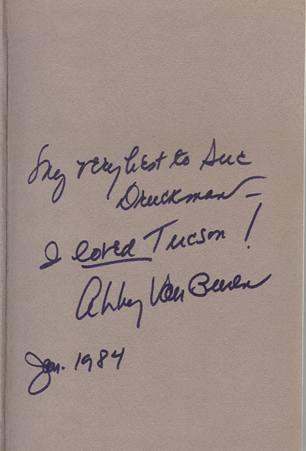 My very best to Sue
Druckman –
I loved Tucson!
Abby Van Buren
Jan. 1984